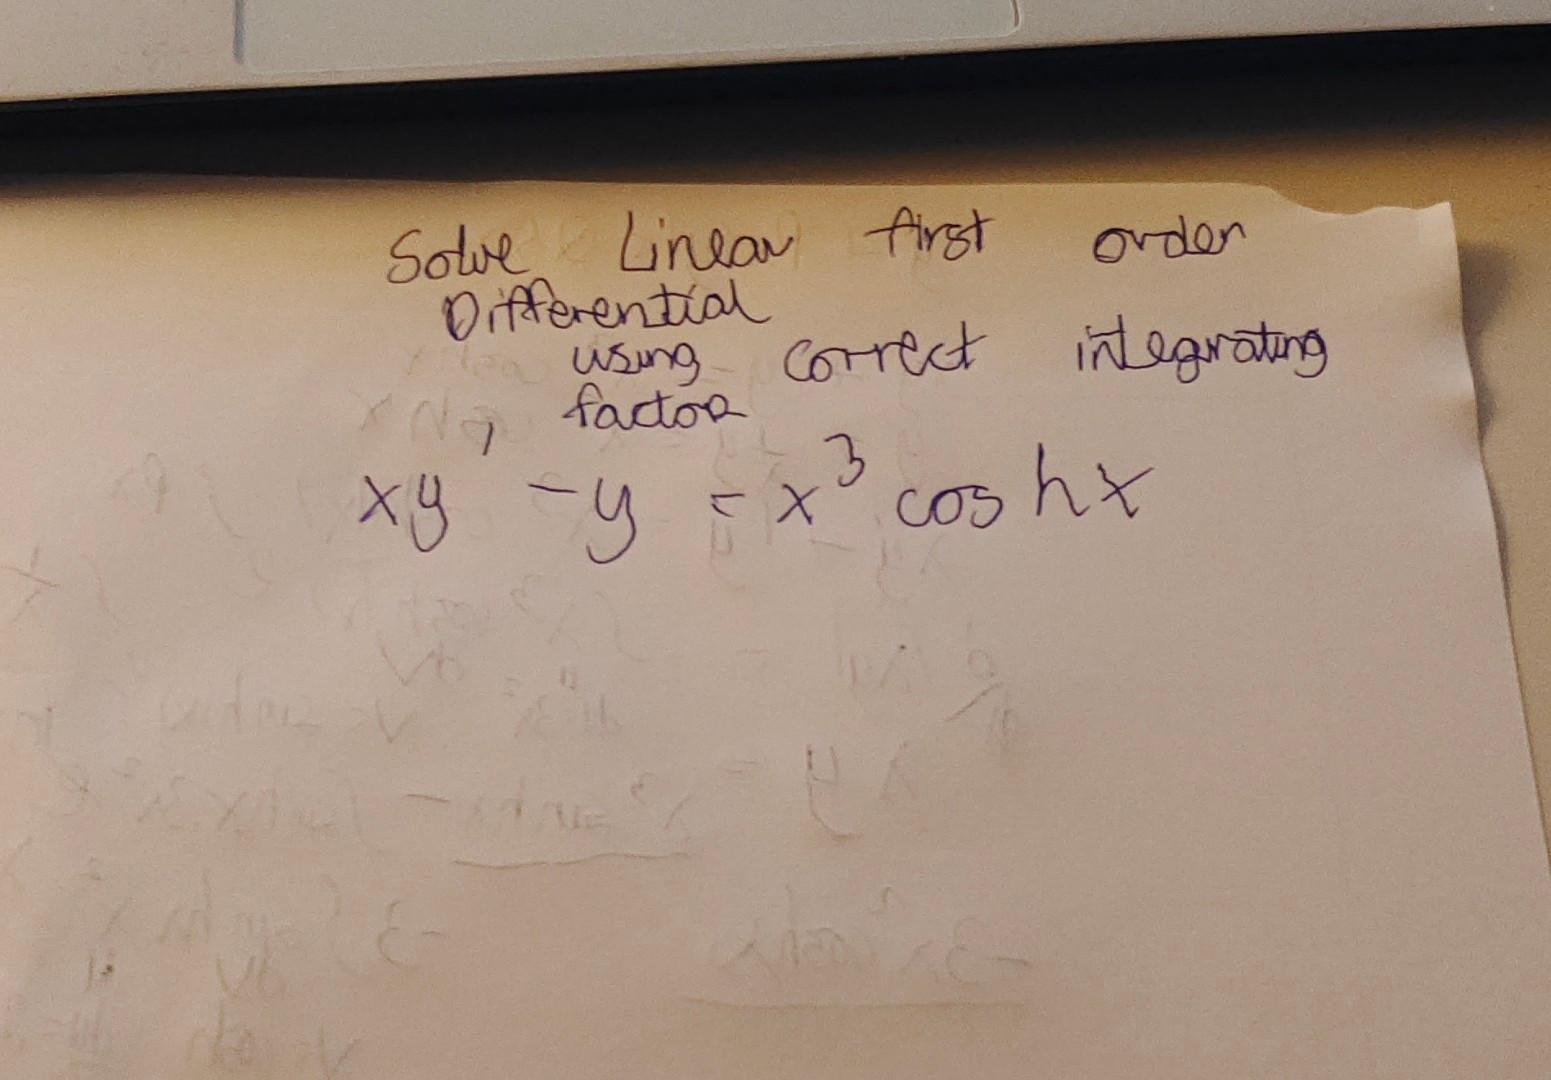 Solve Linear first order
Differential
using correct integrating
factor
xy' - y = x³ cos hx